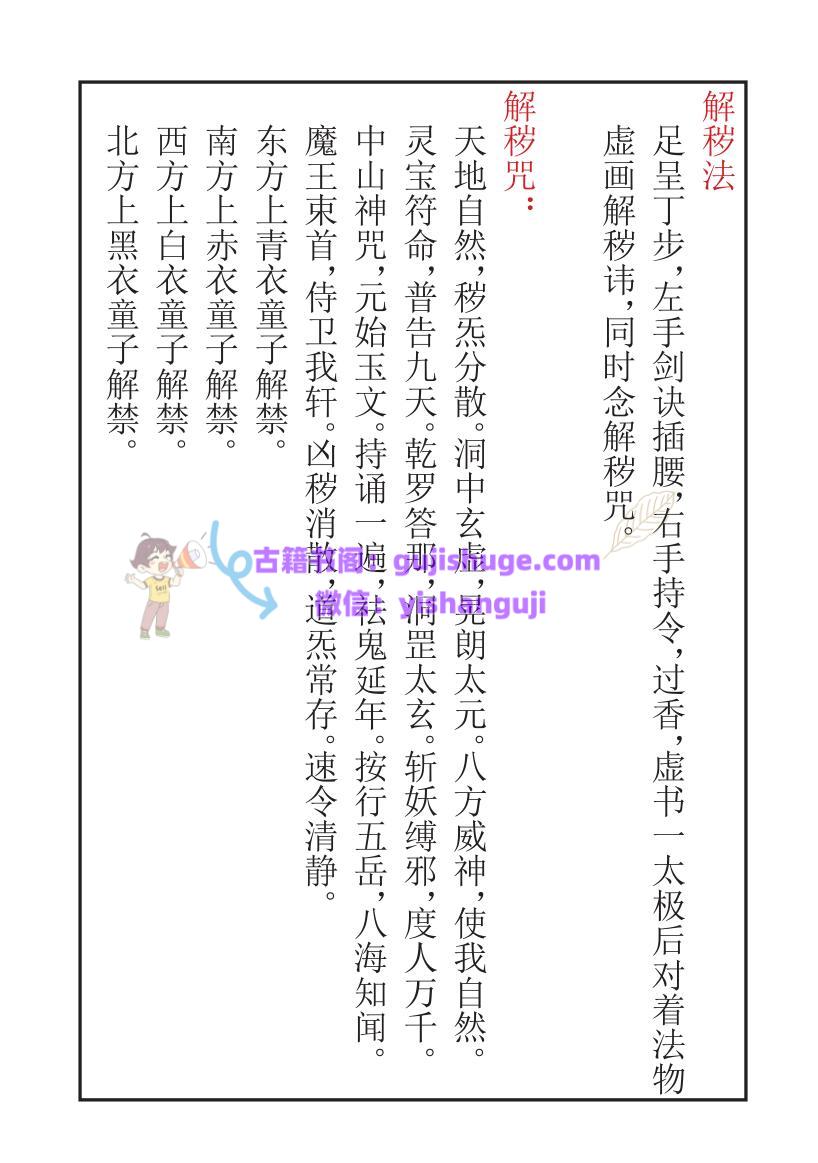 解秽法
足呈丁步，左手剑诀插腰，右手持令，过香，虚书一太极后对着法物
虚画解秽讳，同时念解秽咒。
解秽咒：
天地自然，秽炁分散。洞中玄虚，晃朗太元。八方威神，使我自然。
灵宝符命，普告九天。乾罗答那，洞罡太玄。斩妖缚邪，度人万千。
中山神咒，元始玉文。持诵一遍，祛鬼延年。按行五岳，八海知闻。
魔王束首，侍卫我轩。凶秽消散，道炁常存。速令清静。
东方上青衣童子解禁。
南方上赤衣童子解禁。
西方上白衣童子解禁。
北方上黑衣童子解禁。
古籍书阁：gujishuge.com
微信：yishanguji
Sell